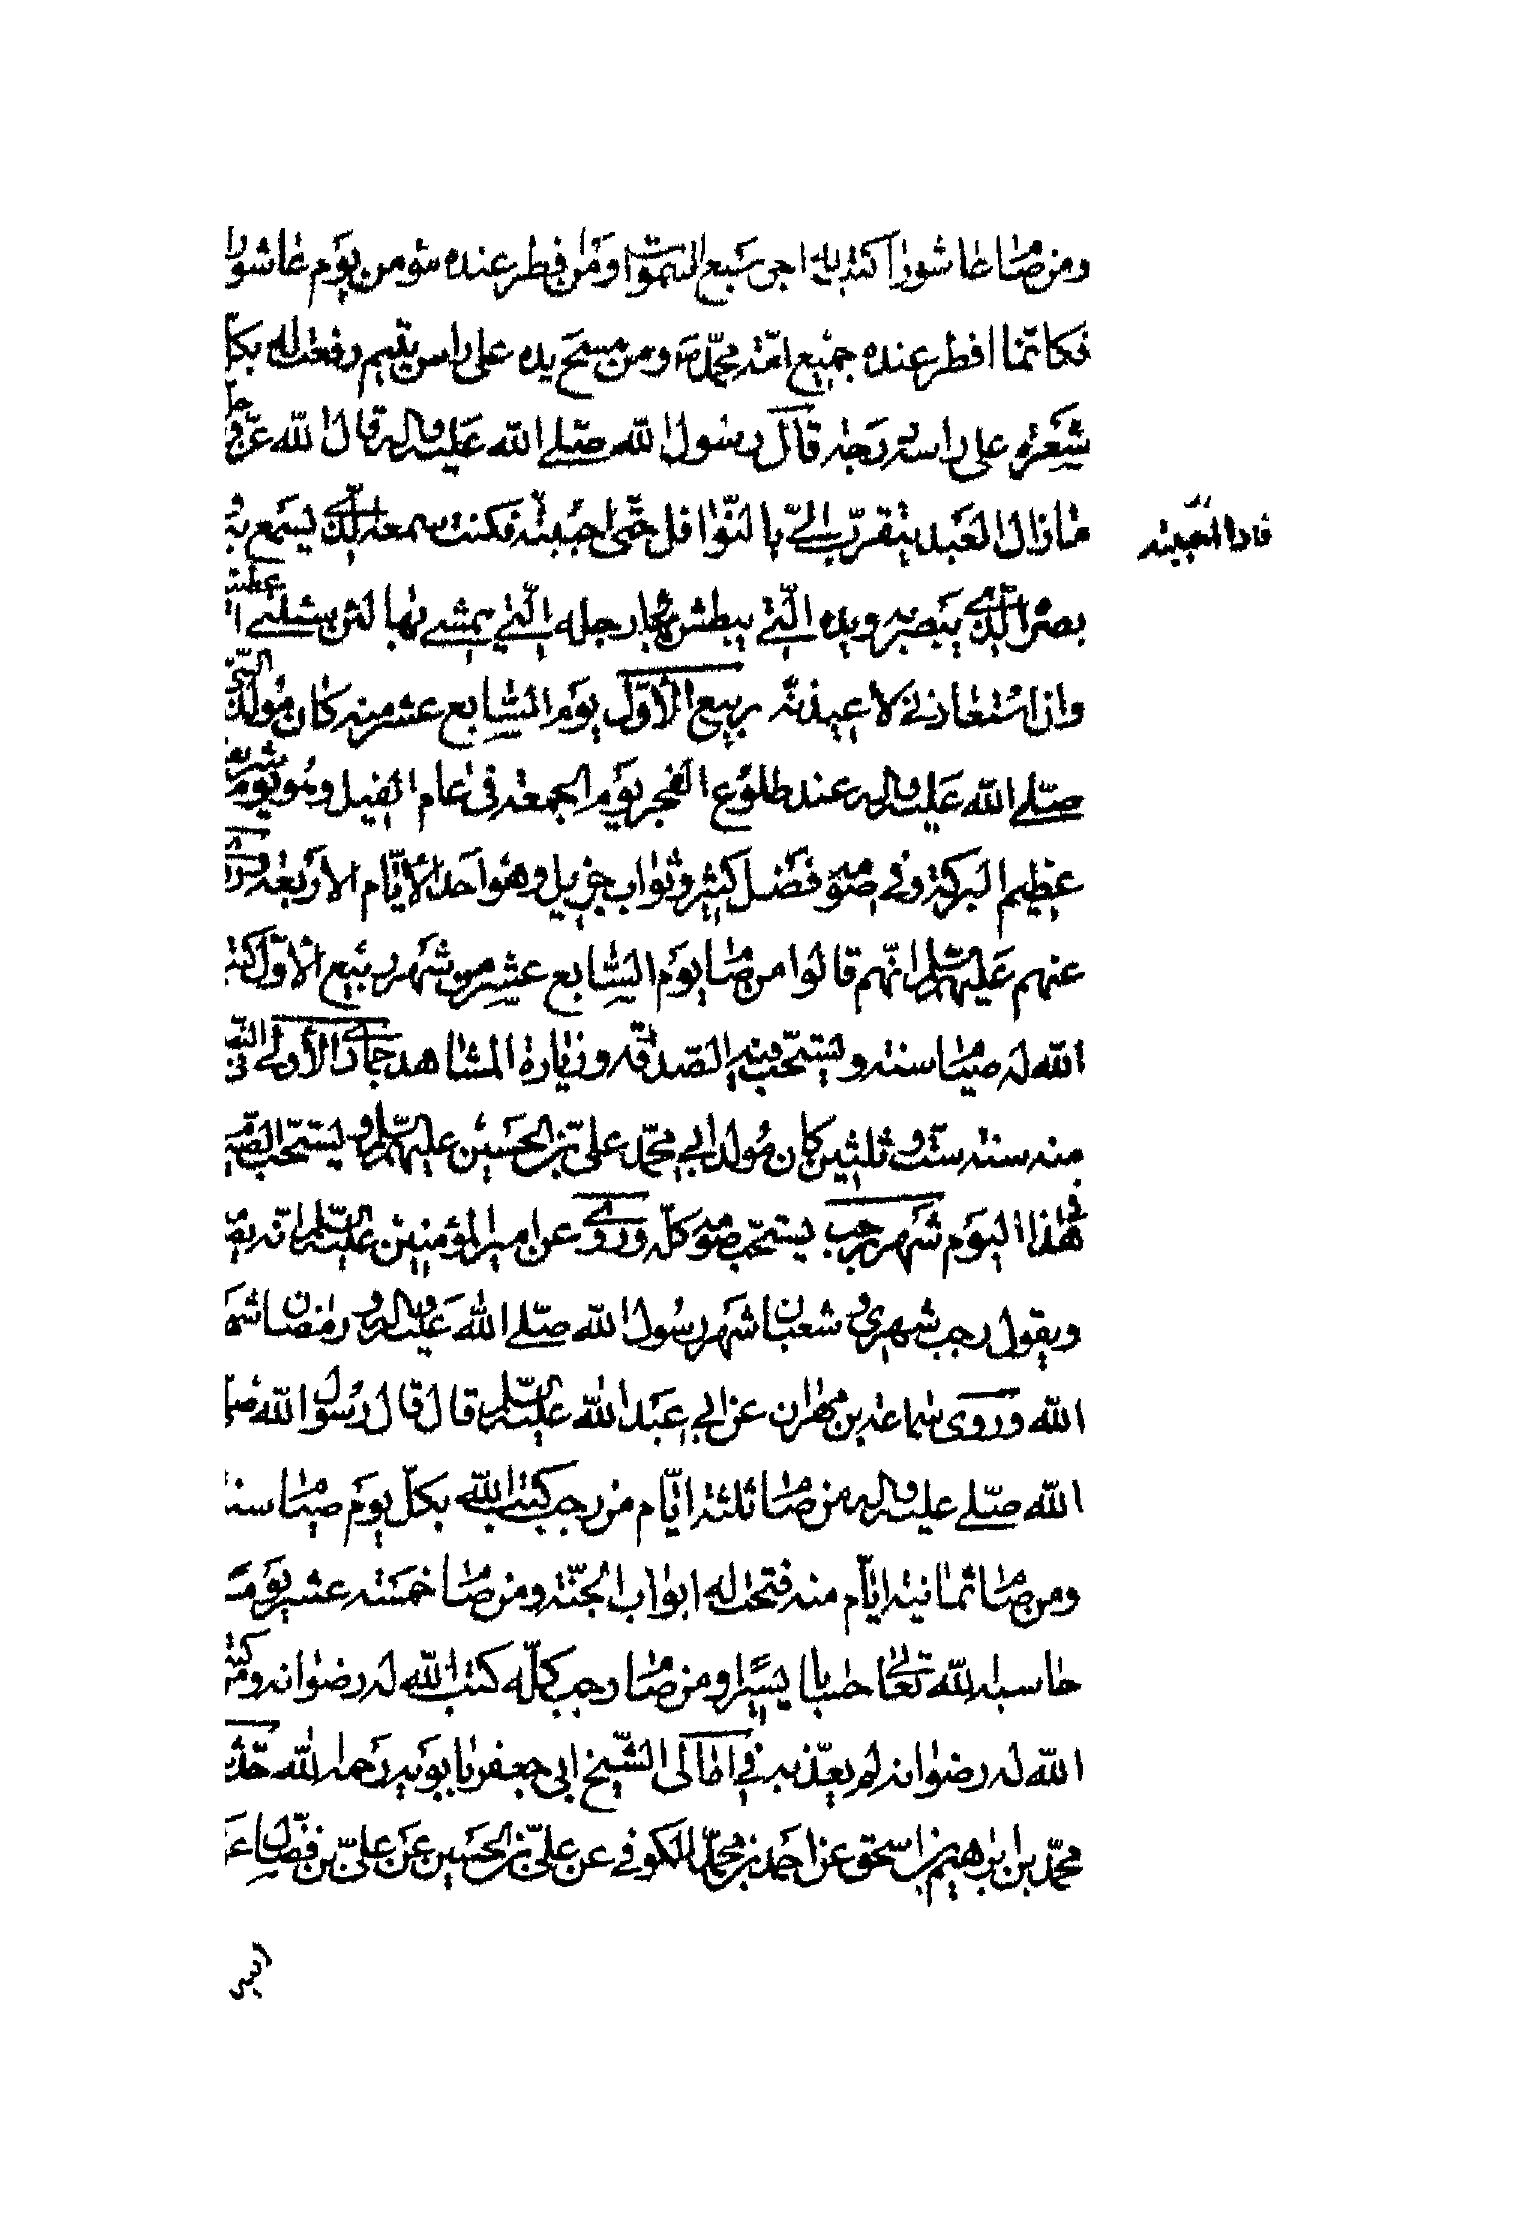 ومن صام عاشورا كتب له اجر سبع السموات ومن فطر عنده مؤمن يوم عاشورا
فكانما افطر عنده جميع امة محمد ومن مسح يده على راس يتيم رفعت له بكل
شعرة على راسه درجة قال رسول الله صلى الله عليه واله قال الله عز وجل
ما زال العبد يتقرب الي بالنوافل حتى احببته فكنت سمعه الذي يسمع به
فاذا احببته
بصره الذي يبصر به ويده التي يبطش بها رجله التي يمشي بها لئن سئلني اعطيته
واذا استعاذني لاعيذنه ربيع الاول يوم السابع عشر منه كان مولد النبي
صلى الله عليه واله عند طلوع الفجر يوم الجمعة في عام الفيل وهو يوم شريف
عظيم البركة وفي صومه فضل كثير وثواب جزيل وهو احد الايام الاربعة فروي
عنهم عليهم السلم انهم قالوا من صام يوم السابع عشر من شهر ربيع الاول كتب
الله له صيام سنة ويستحب فيه الصدقة وزيارة المشاهد جمادى الاولى
منه سنة ست وثلثين كان مولد ابي محمد علي بن الحسين عليهم السلم ويستحب الصيام
في هذا اليوم شهر رجب يستحب صومه كله وروي عن امير المؤمنين عليه السلم انه
ويقول رجب شهري وشعبان شهر رسول الله صلى الله عليه واله ورمضان شهر
الله وروى سماعة بن مهران عن ابي عبد الله عليه السلم قال قال رسول الله صلى
الله صلى عليه واله من صام ثلثة ايام من رجب كتب الله بكل يوم صيام سنة
ومن صام ثمانية ايام منه فتحت له ابواب الجنة ومن صام خمسة عشر يوما
حاسبه الله تعالى حسابا يسيرا ومن صام رجب كله كتب الله له رضوانه ومن كتب
الله له رضوانه لم يعذبه في امالي الشيخ ابي جعفر بابويه رحمه الله حدثنا
محمد بن ابرهيم بن اسحق عن احمد بن محمد الكوفي عن علي بن الحسين عن علي بن فضال عن
ابيه